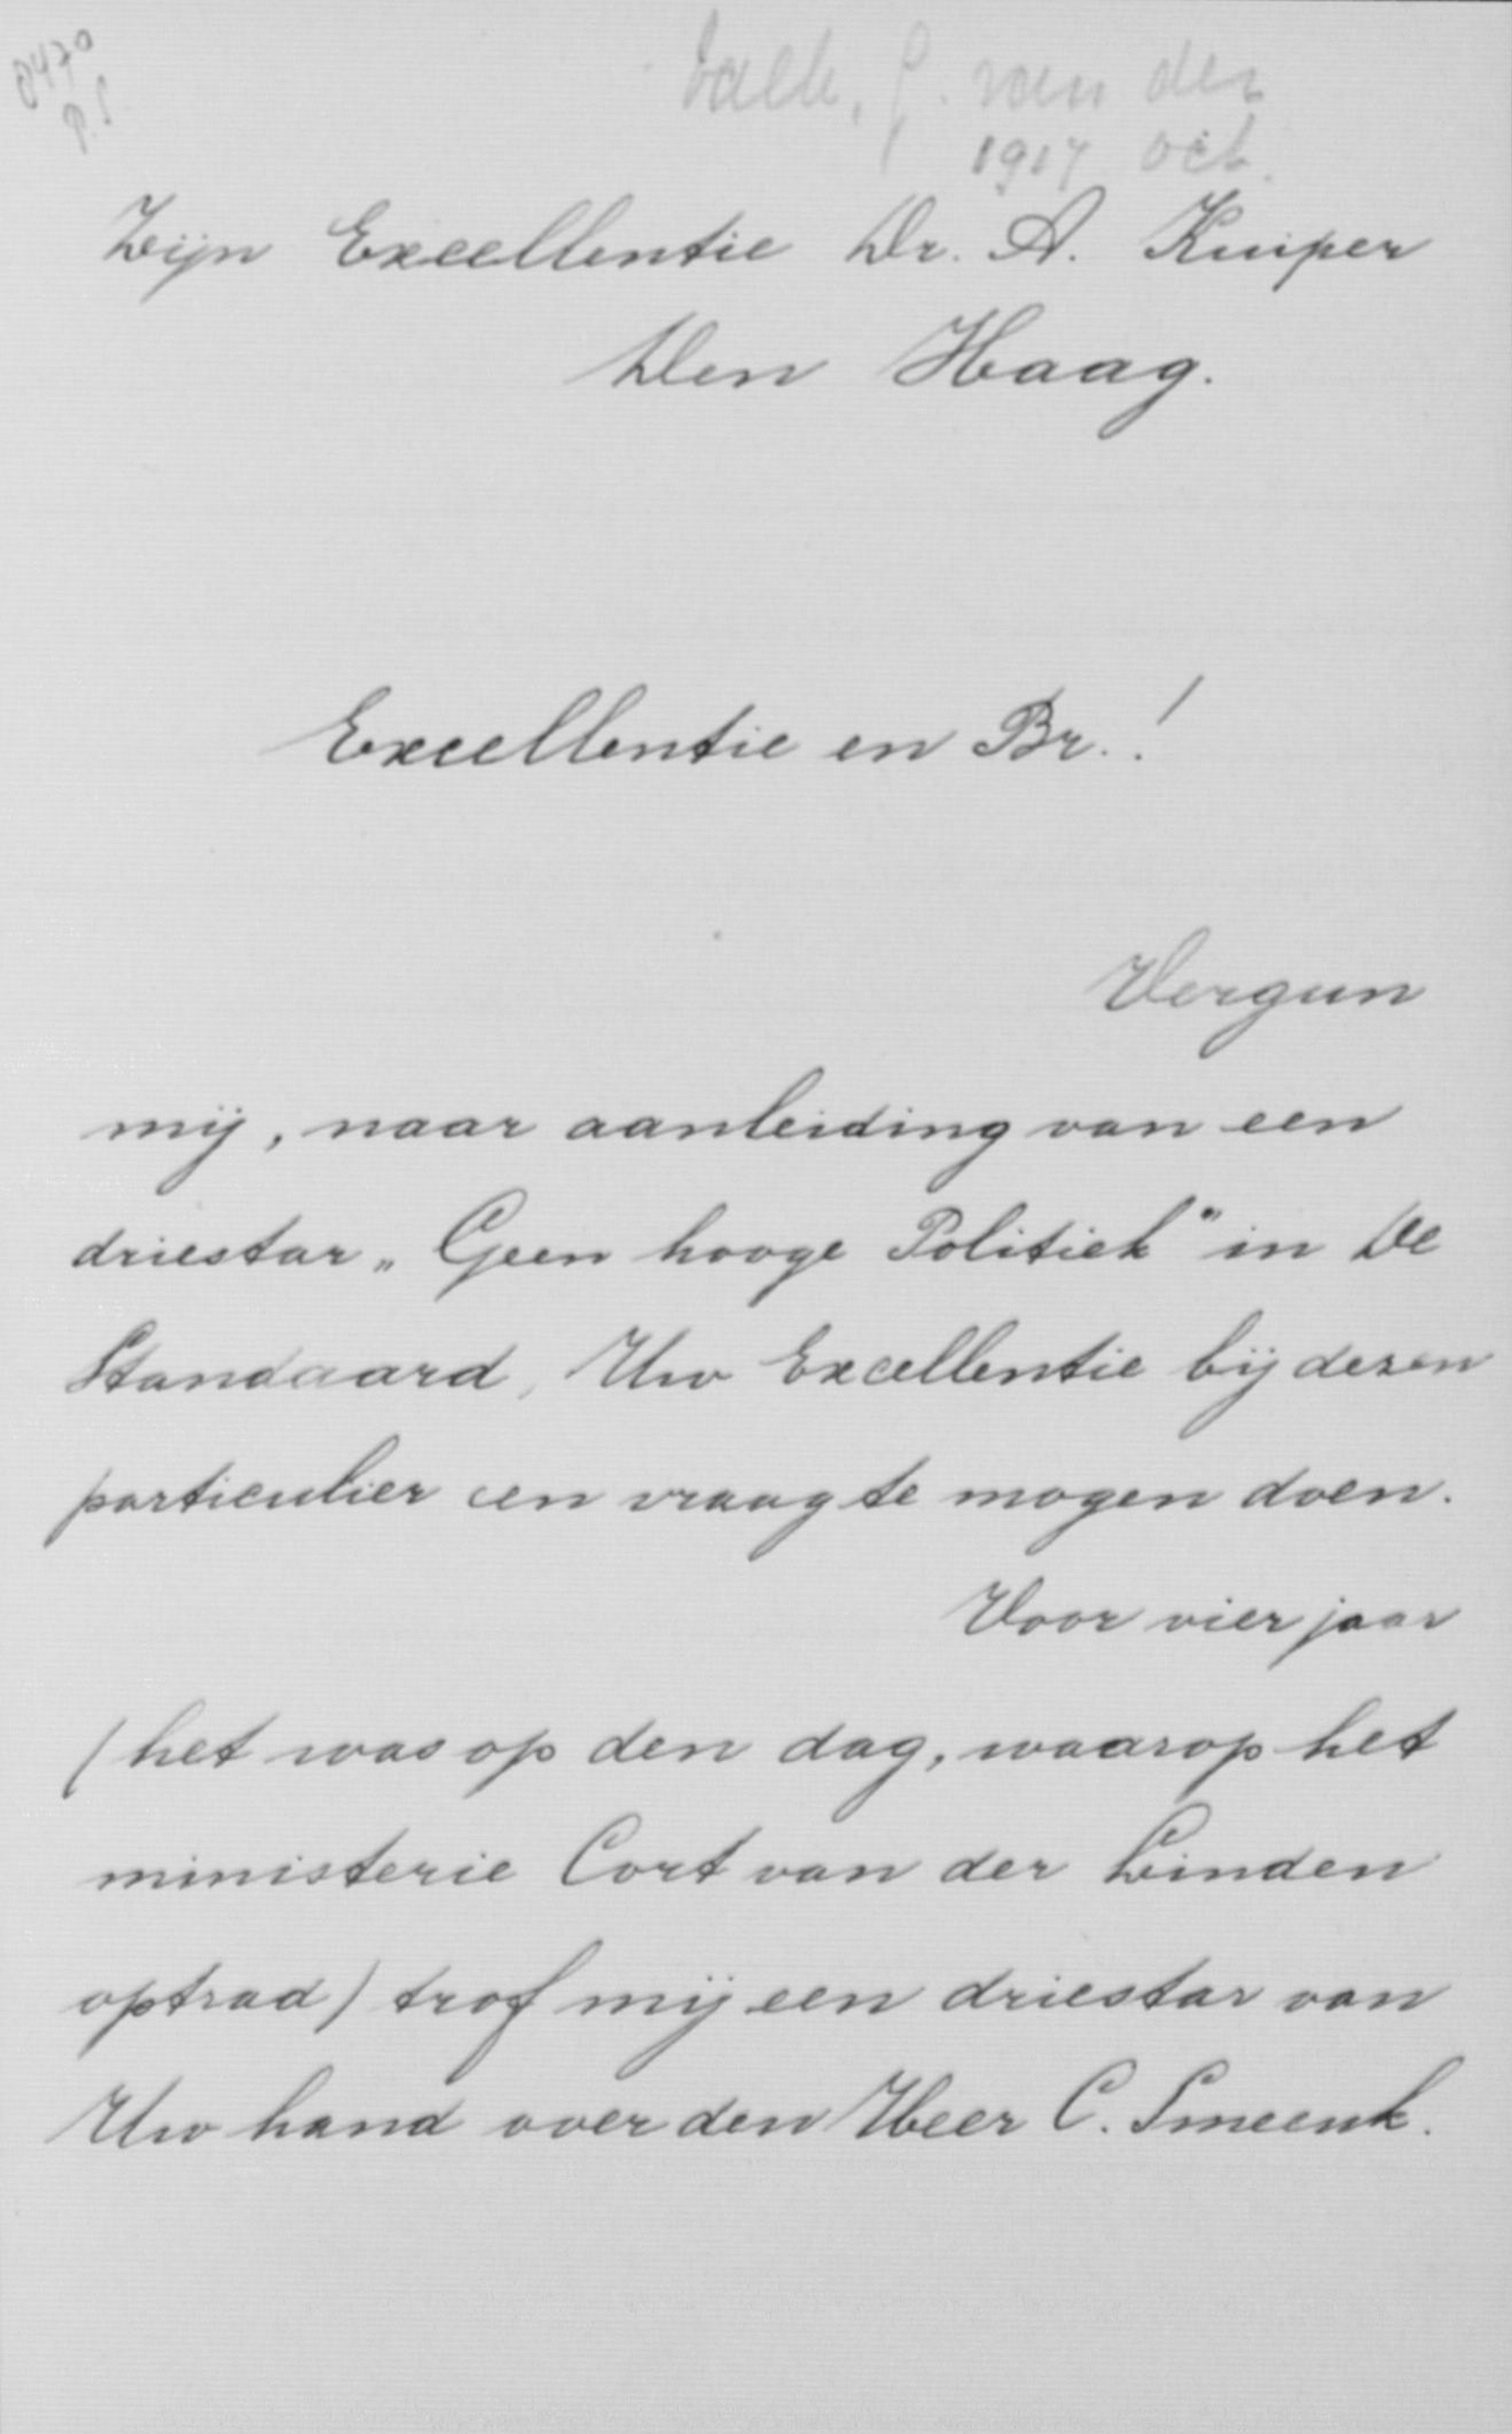 8470
p.1
Valk, J. van der
1917 oct.
Zijn Excellentie Dr. A. Kuiper
Den Haag.
Excellentie en Br.!
Vergun
mij, naar aanleiding van een
driestar „Geen hooge Politiek" in De
Standaard, Uw Excellentie bij dezen
particulier een vraag te mogen doen.
Voor vier jaar
(het was op den dag, waarop het
ministerie Cort van der Linden
optrad) trof mij een driestar van
Uw hand over den Heer C. Smeenk.